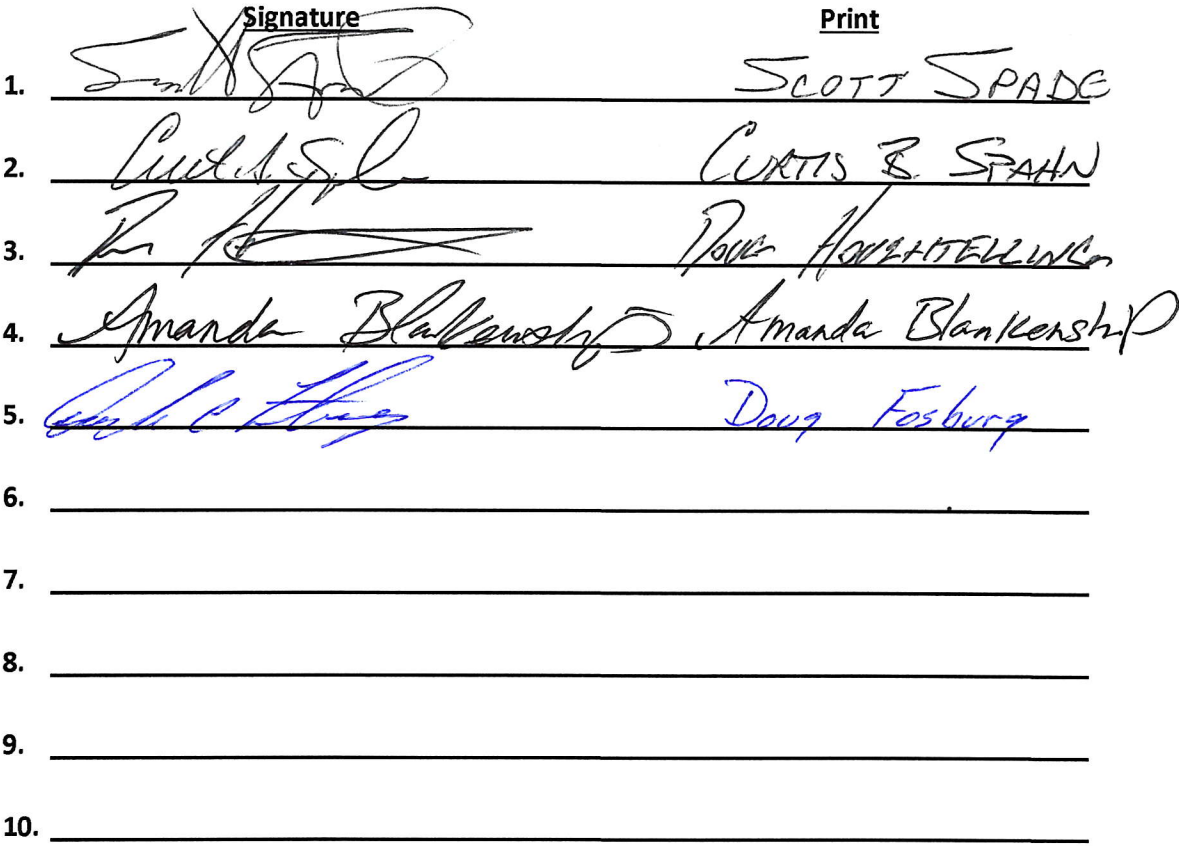 Signature Print
1. Scott Spade SCOTT SPADE
2. CURTIS B. SPAHN
3. DOUG HOUGHTELLING
4. Amanda Blankenship Amanda Blankenship
5. Doug Fosburg
6.
7.
8.
9.
10.